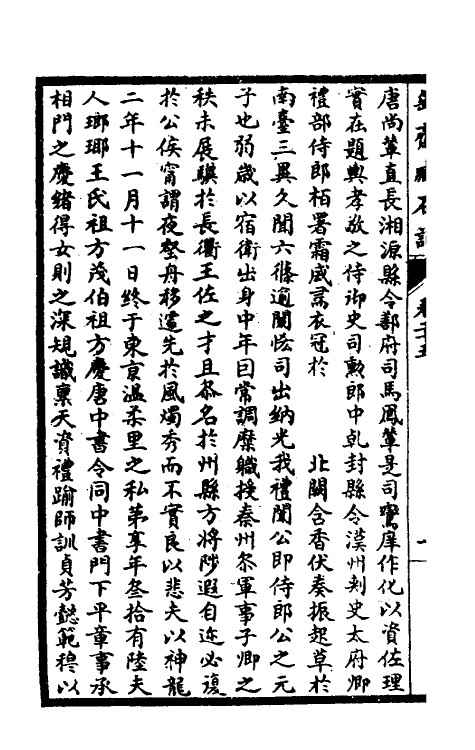 唐尚輦直長湘源縣令鄯府司馬鳳輦是司鸞庫作化以資佐理
實在題輿孝敬之侍御史司勲郎中乹封縣令漢州刾史太府卿
禮部侍郎栢署霜威䔍衣冠於　　北闕含香伏奏振起草於
南臺三異久聞六條逾闡恡司出納光我禮闈公即侍郎公之元
子也弱歲以宿衛出身中年曰常調縻職授秦州叅軍事子卿之
秩未展驥於長衢王佐之才且叅名於州縣方將陟遐自迩必復
於公侯甯謂夜壑舟移遽先於風燭秀而不實良以悲夫以神龍
二年十一月十一日終于東京温柔里之私苐享年叄拾有陸夫
人瑯瑘王氏祖方茂伯祖方慶唐中書令同中書門下平章事承
相門之慶緒得女則之深規識稟天資禮踰師訓貞芳懿範穆以
卷二十五
一